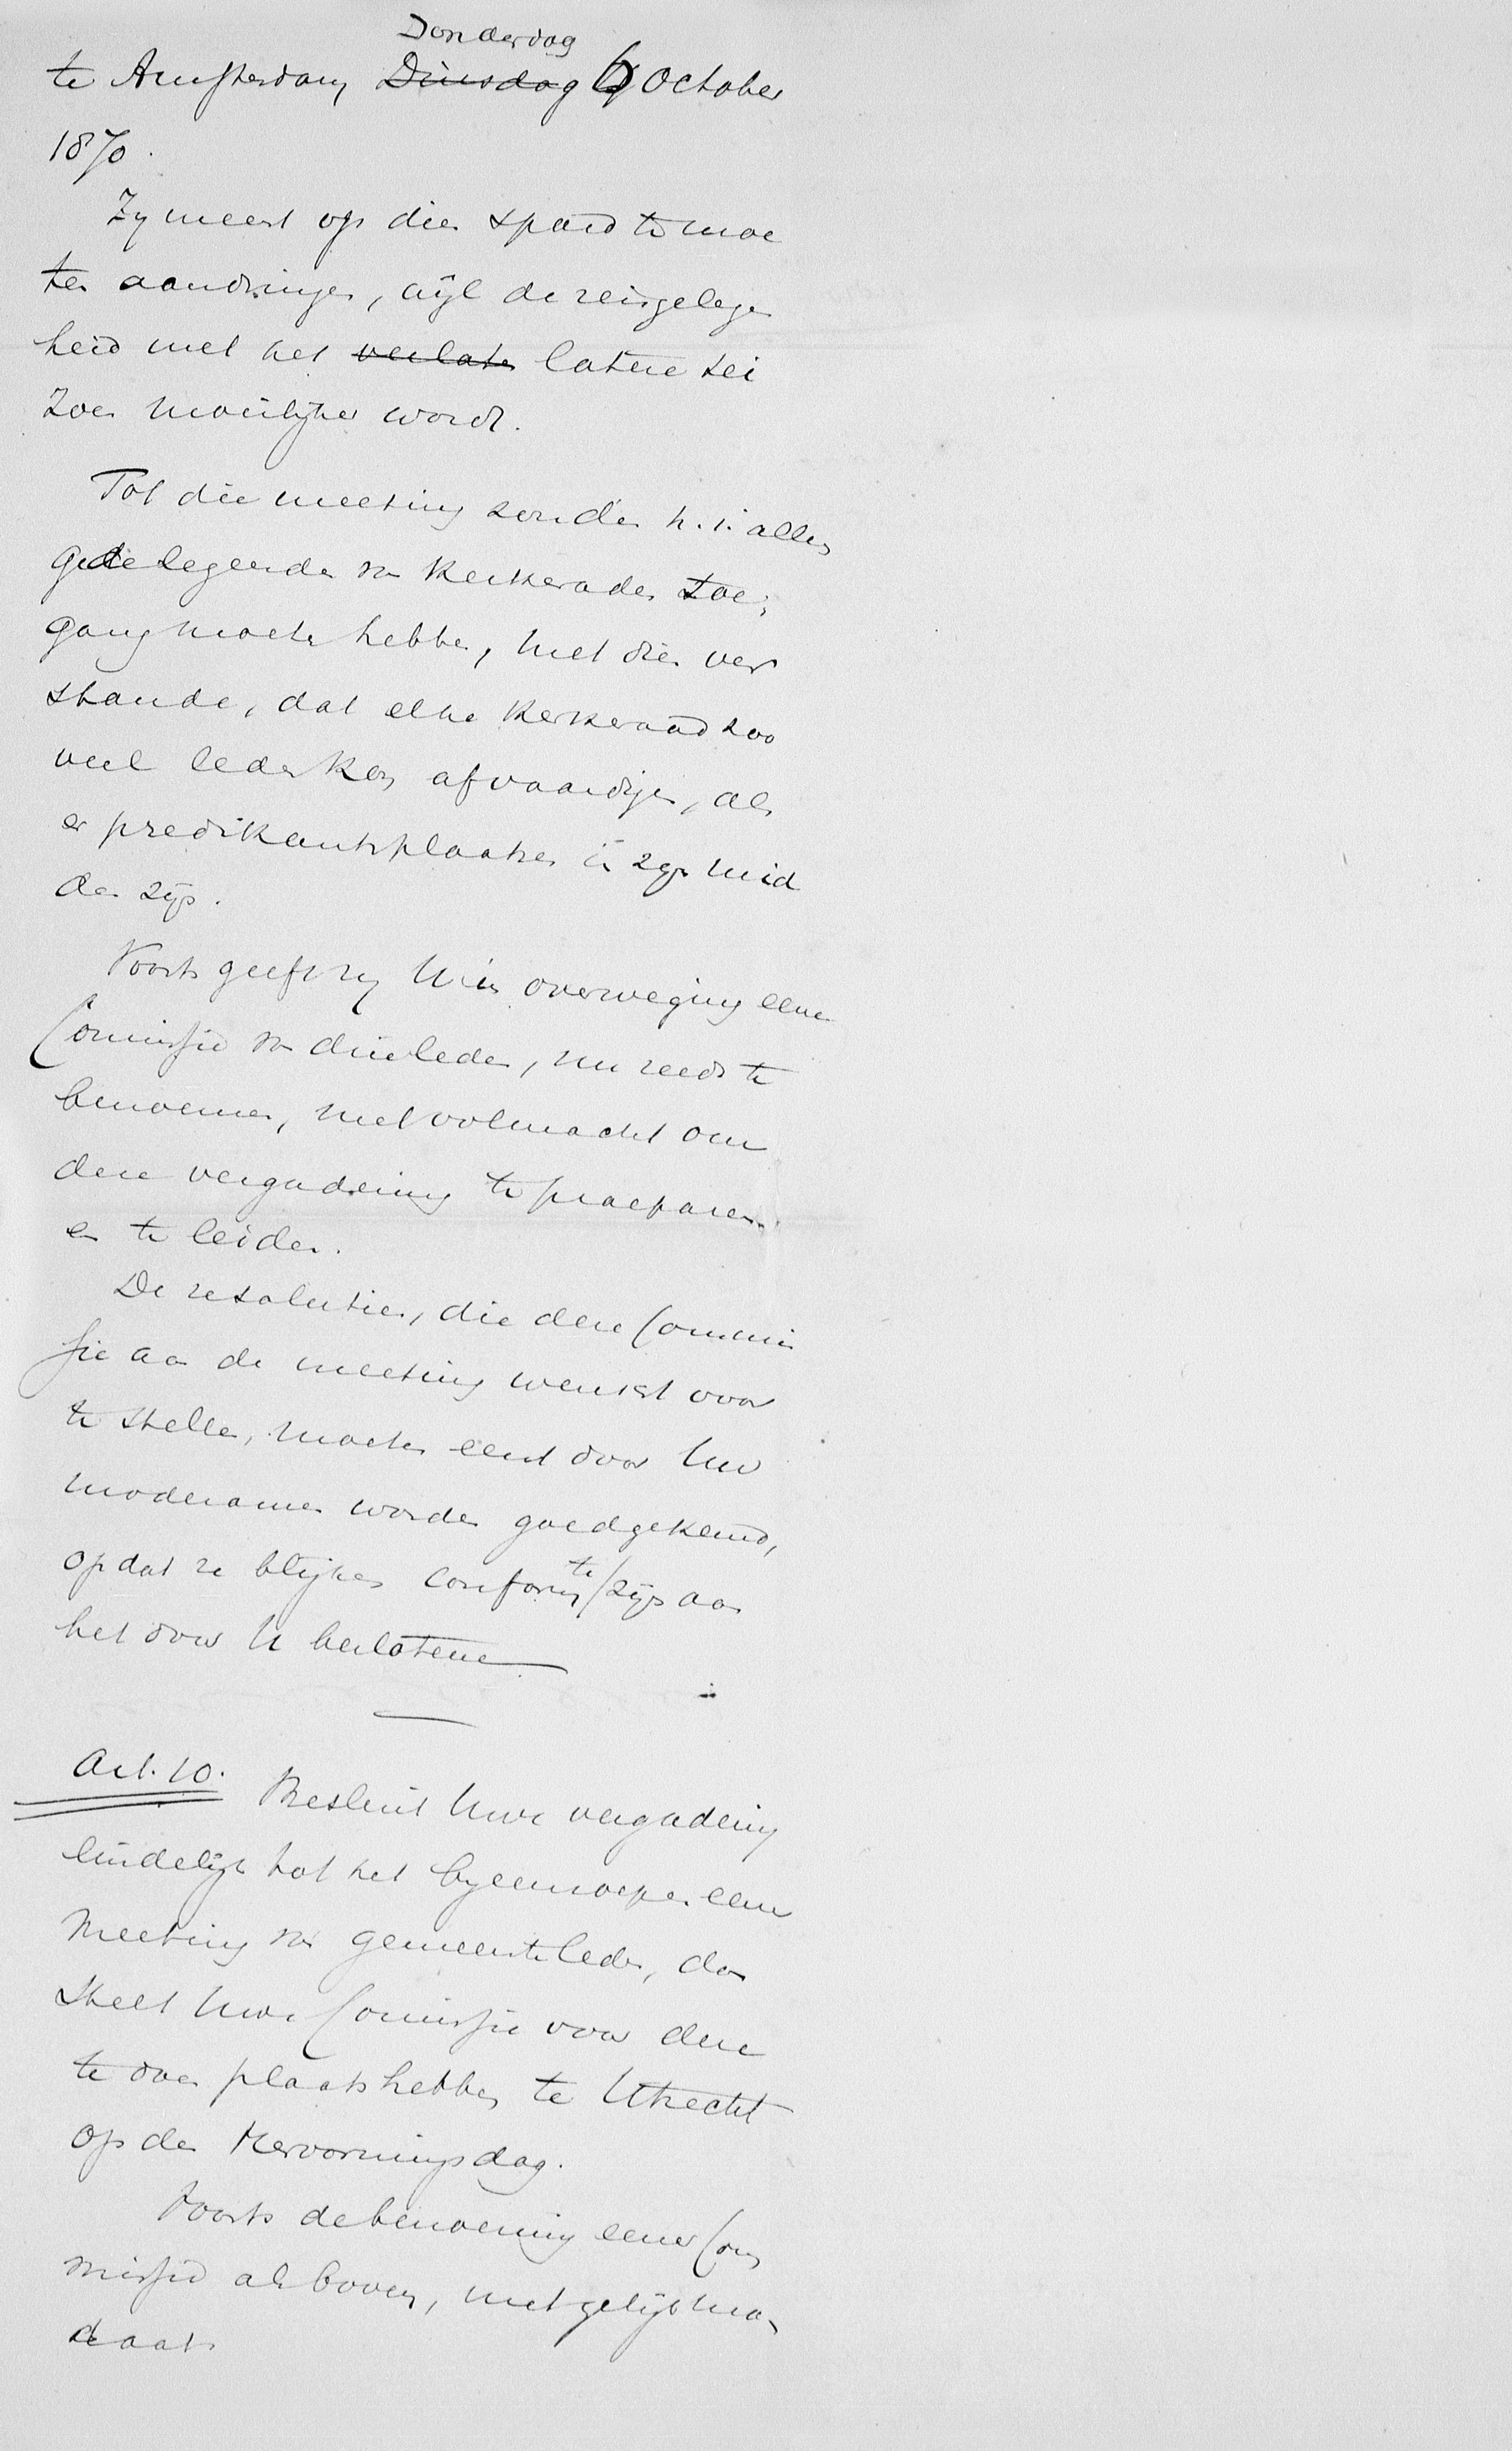 Donderdag
te Amsterdam, Dinsdag 6 October
1870.
Zy meent op dien spoed te moe
ten aandringen, wijl de reisgelegen
heid met het verlaten latere sei
zoen moeilijker wordt.
Tot die meeting zouden h. i. alle
gedelegeerden van kerkeraden toe-
gang moeten hebben, met dien ver
stande, dat elke kerkeraad zoo
veel leden kon afvaardigen, als
er predikantsplaatsen in zijn mid
den zijn.
Voorts geeft zy U in overweging eene
Commissie van drie leden, nu reeds te
benoemen, met volmacht om
deze vergadering te praepareren
en te leiden.
De resolutien, die deze Commis
sie aan de meeting wenscht voor
te stellen, moeten eerst door Uw
moderamen worden goedgekeurd,
opdat ze blijken conform te zijn aan
het door U beslotene
Art. 10. Besluit Uwe vergadering
eindelijk tot het byeenroepen eener
Meeting van gemeenteleden, dan
stelt Uwe Commissie voor deze
te doen plaats hebben te Utrecht
op den Hervormingsdag.
Voorts de benoeming eener Com
missie als boven, met gelijk man
daat.